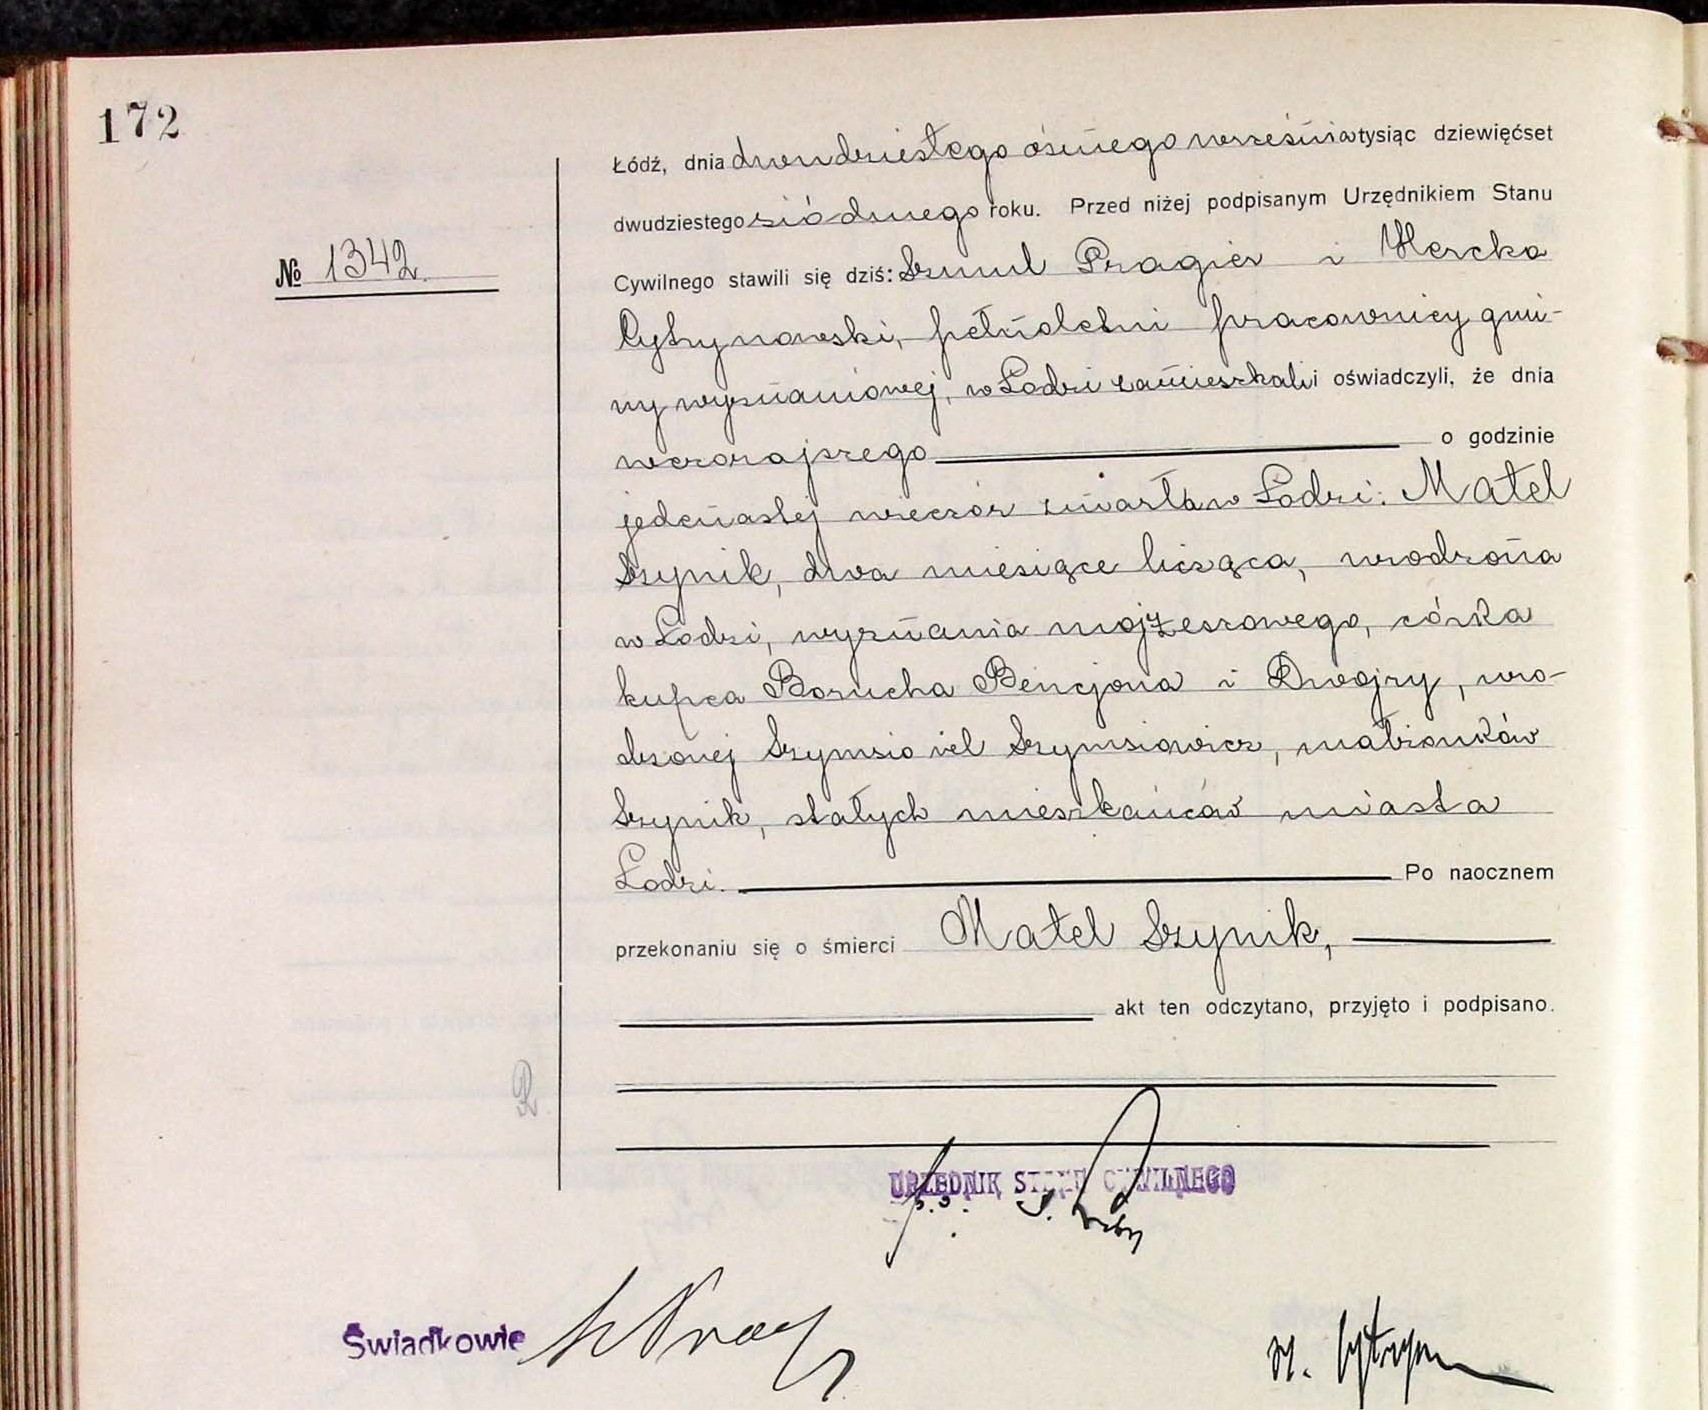 172
№ 1342.
Łódź, dnia dwudziestego ósmego września tysiąc dziewięćset
dwudziestego siódmego roku. Przed niżej podpisanym Urzędnikiem Stanu
Cywilnego stawili się dziś: Szmul Pragier i Hercka
Cytrynowski, pełnoletni pracownicy gmi-
ny wyznaniowej, w Łodzi zamieszkali i oświadczyli, że dnia
wczorajszego o godzinie
jedenastej wieczór zmarła w Łodzi: Matel
Szynik, dwa miesiące licząca, urodzona
w Łodzi, wyznania mojżeszowego, córka
kupca Borucha Bencjona i Dwojry, uro-
dzonej Szymsio vel Szymsiowicz, małżonków
Szynik, stałych mieszkańców miasta
Łodzi. Po naocznem
przekonaniu się o śmierci Matel Szynik,
akt ten odczytano, przyjęto i podpisano.
URZĘDNIK STANU CYWILNEGO
Świadkowie
H. Cytryn